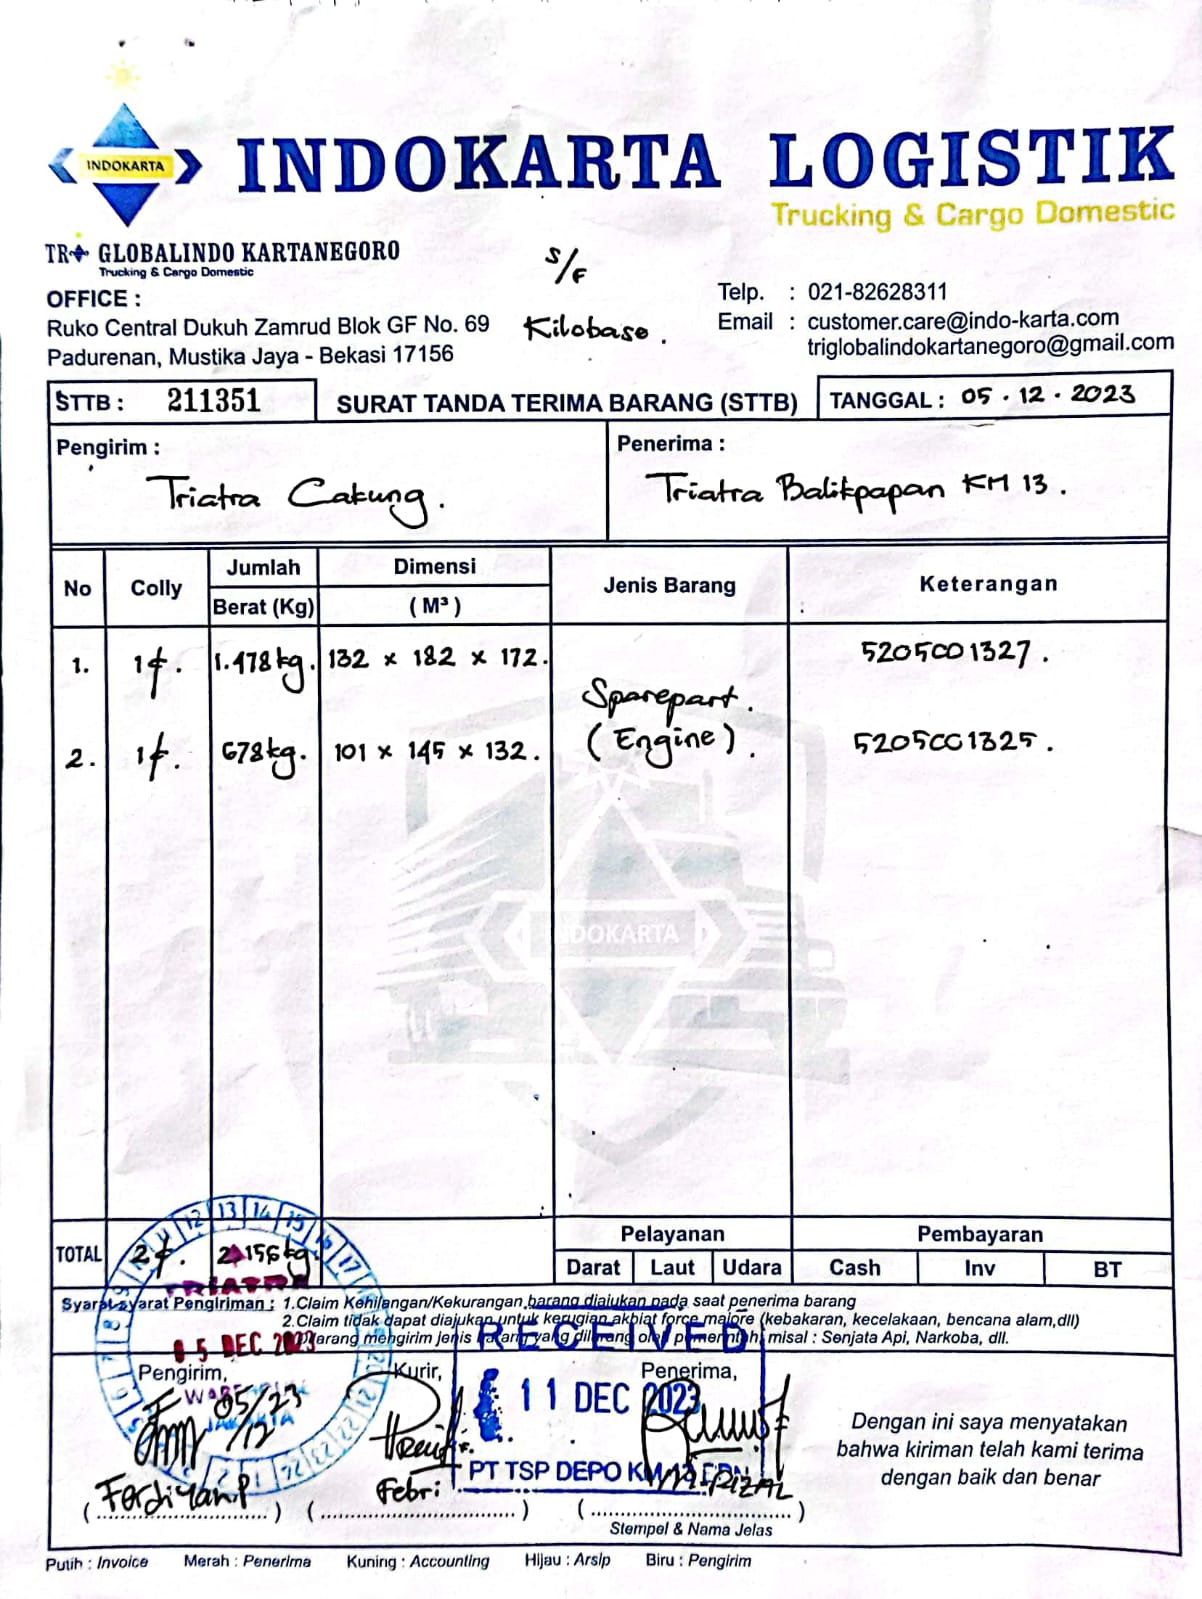 INDOKARTA
INDOKARTA LOGISTIK
Trucking & Cargo Domestic
TRI GLOBALINDO KARTANEGORO
Trucking & Cargo Domestic
S/F
Kilobaso.
OFFICE :
Ruko Central Dukuh Zamrud Blok GF No. 69
Padurenan, Mustika Jaya - Bekasi 17156
Telp. : 021-82628311
Email : customer.care@indo-karta.com
triglobalindokartanegoro@gmail.com
STTB : 211351
SURAT TANDA TERIMA BARANG (STTB)
TANGGAL : 05 . 12 . 2023
Pengirim :
Triatra Cakung.
Penerima :
Triatra Balikpapan KM 13.
No Colly Jumlah Berat (Kg) Dimensi (M³) Jenis Barang Keterangan
1. 1 1.478 kg. 132 x 182 x 172. 5205001327.
Sparepart.
(Engine).
2. 1 678 kg. 101 x 145 x 132. 5205001325.
INDOKARTA
TOTAL 2 2.156 kg.
Pelayanan Pembayaran
Darat Laut Udara Cash Inv BT
Syarat-syarat Pengiriman : 1.Claim Kehilangan/Kekurangan barang diajukan pada saat penerima barang
2.Claim tidak dapat diajukan untuk kerugian akbiat force majore (kebakaran, kecelakaan, bencana alam,dll)
barang mengirim jenis barang yang dilarang oleh pemerintah misal : Senjata Api, Narkoba, dll.
TRIATRA
05 DEC 2023
JAKARTA
12 13 14 15 16 17
RECEIVED
11 DEC 2023
PT TSP DEPO KM 13
Pengirim, Kurir, Penerima,
05/23
/12
Ferdiyan.P
Febri
RIZAL
Dengan ini saya menyatakan
bahwa kiriman telah kami terima
dengan baik dan benar
Stempel & Nama Jelas
Putih : Invoice Merah : Penerima Kuning : Accounting Hijau : Arsip Biru : Pengirim